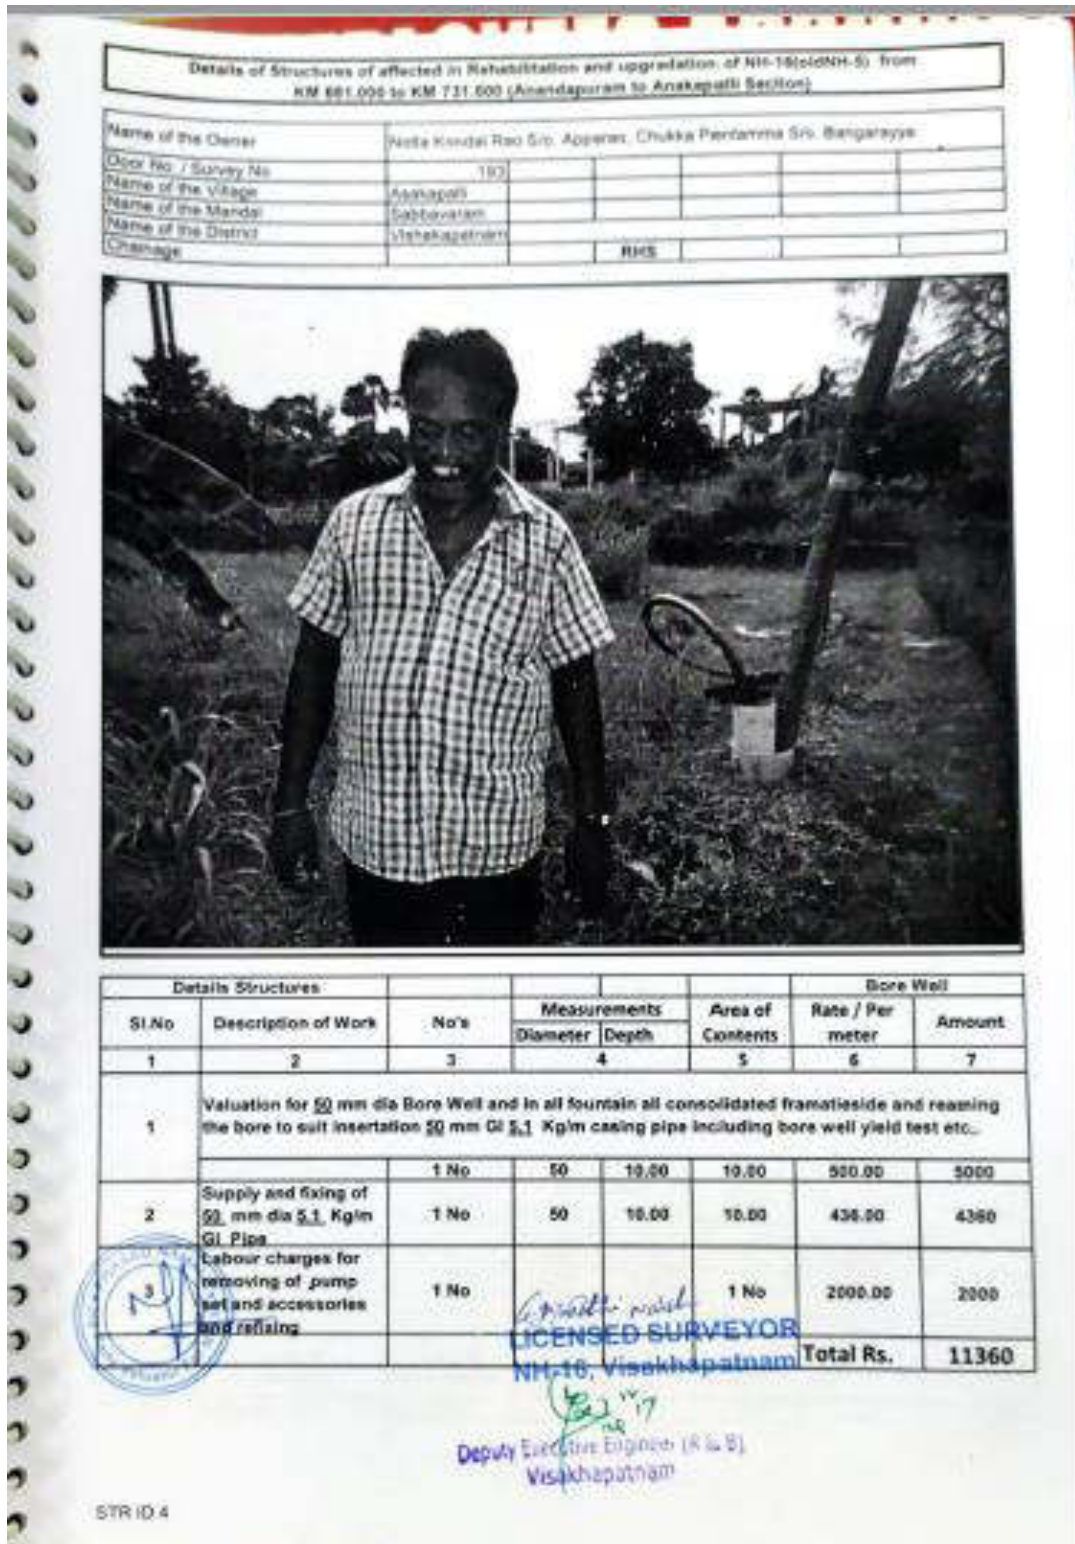 Details of Structures of affected in Rehabilitation and upgradation of NH-16(oldNH-5) from
KM 681.000 to KM 731.600 (Anandapuram to Anakapalli Section)
Name of the Owner Kondal Rao S/o. Apparao, Chukka Pentamma S/o. Bangarayya
Door No. / Survey No 193
Name of the Village Asakapalli
Name of the Mandal Sabbavaram
Name of the District Vishakapatnam
Chainage RHS
Details Structures Bore Well
Sl.No Description of Work No's Measurements Area of Contents Rate / Per meter Amount
Diameter Depth
1 2 3 4 5 6 7
1 Valuation for 50 mm dia Bore Well and in all fountain all consolidated framatieside and reaming
the bore to suit insertation 50 mm GI 5.1 Kg/m casing pipe including bore well yield test etc..
1 No 50 10.00 10.00 500.00 5000
2 Supply and fixing of
50 mm dia 5.1 Kg/m
GI Pipe
1 No 50 10.00 10.00 436.00 4360
3 Labour charges for
removing of pump
set and accessories
and refixing
1 No 1 No 2000.00 2000
LICENSED SURVEYOR
NH-16, Visakhapatnam
Total Rs. 11360
Deputy Executive Engineer (R & B)
Visakhapatnam
STR ID 4